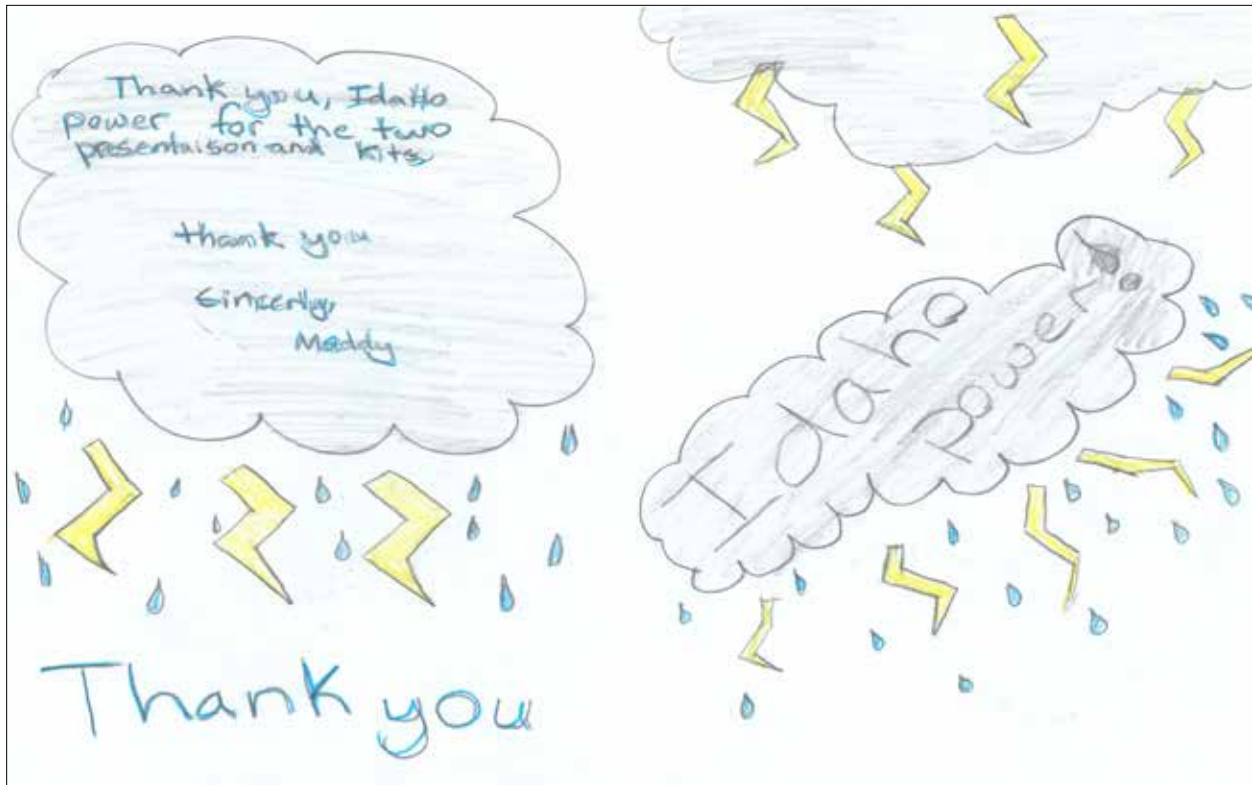 Thank you, Idaho
power for the two
presentaison and kits
thank you
Sincerly,
Maddy
Thank you
Idaho
power!